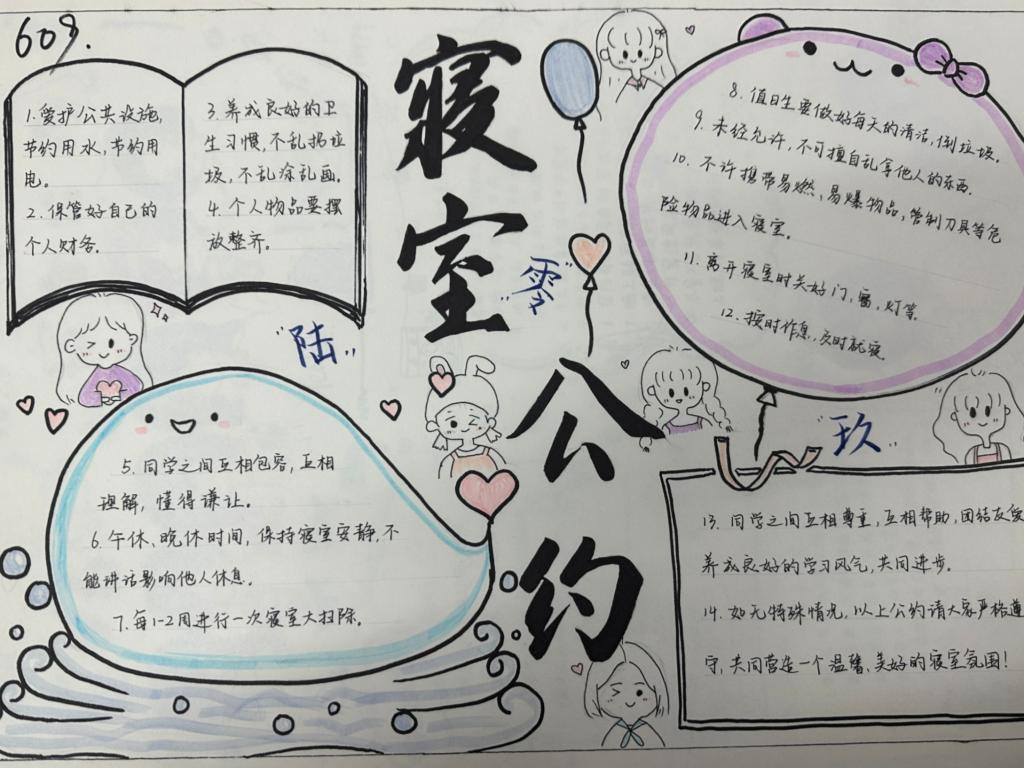 609.
寝室公约
"陆"
"零"
"玖"
1.爱护公共设施,
节约用水,节约用
电。
2.保管好自己的
个人财务。
3.养成良好的卫
生习惯,不乱扔垃
圾,不乱涂乱画。
4.个人物品要摆
放整齐。
5.同学之间互相包容,互相
理解,懂得谦让。
6.午休、晚休时间,保持寝室安静,不
能讲话影响他人休息。
7.每1-2周进行一次寝室大扫除。
8.值日生要做好每天的清洁,倒垃圾。
9.未经允许,不可擅自乱拿他人的东西.
10.不许携带易燃、易爆物品,管制刀具等危
险物品进入寝室。
11.离开寝室时关好门,窗,灯等.
12.按时作息,及时就寝
13.同学之间互相尊重,互相帮助,团结友爱
养成良好的学习风气,共同进步.
14.如无特殊情况,以上公约请大家严格遵
守,共同营造一个温馨、美好的寝室氛围!